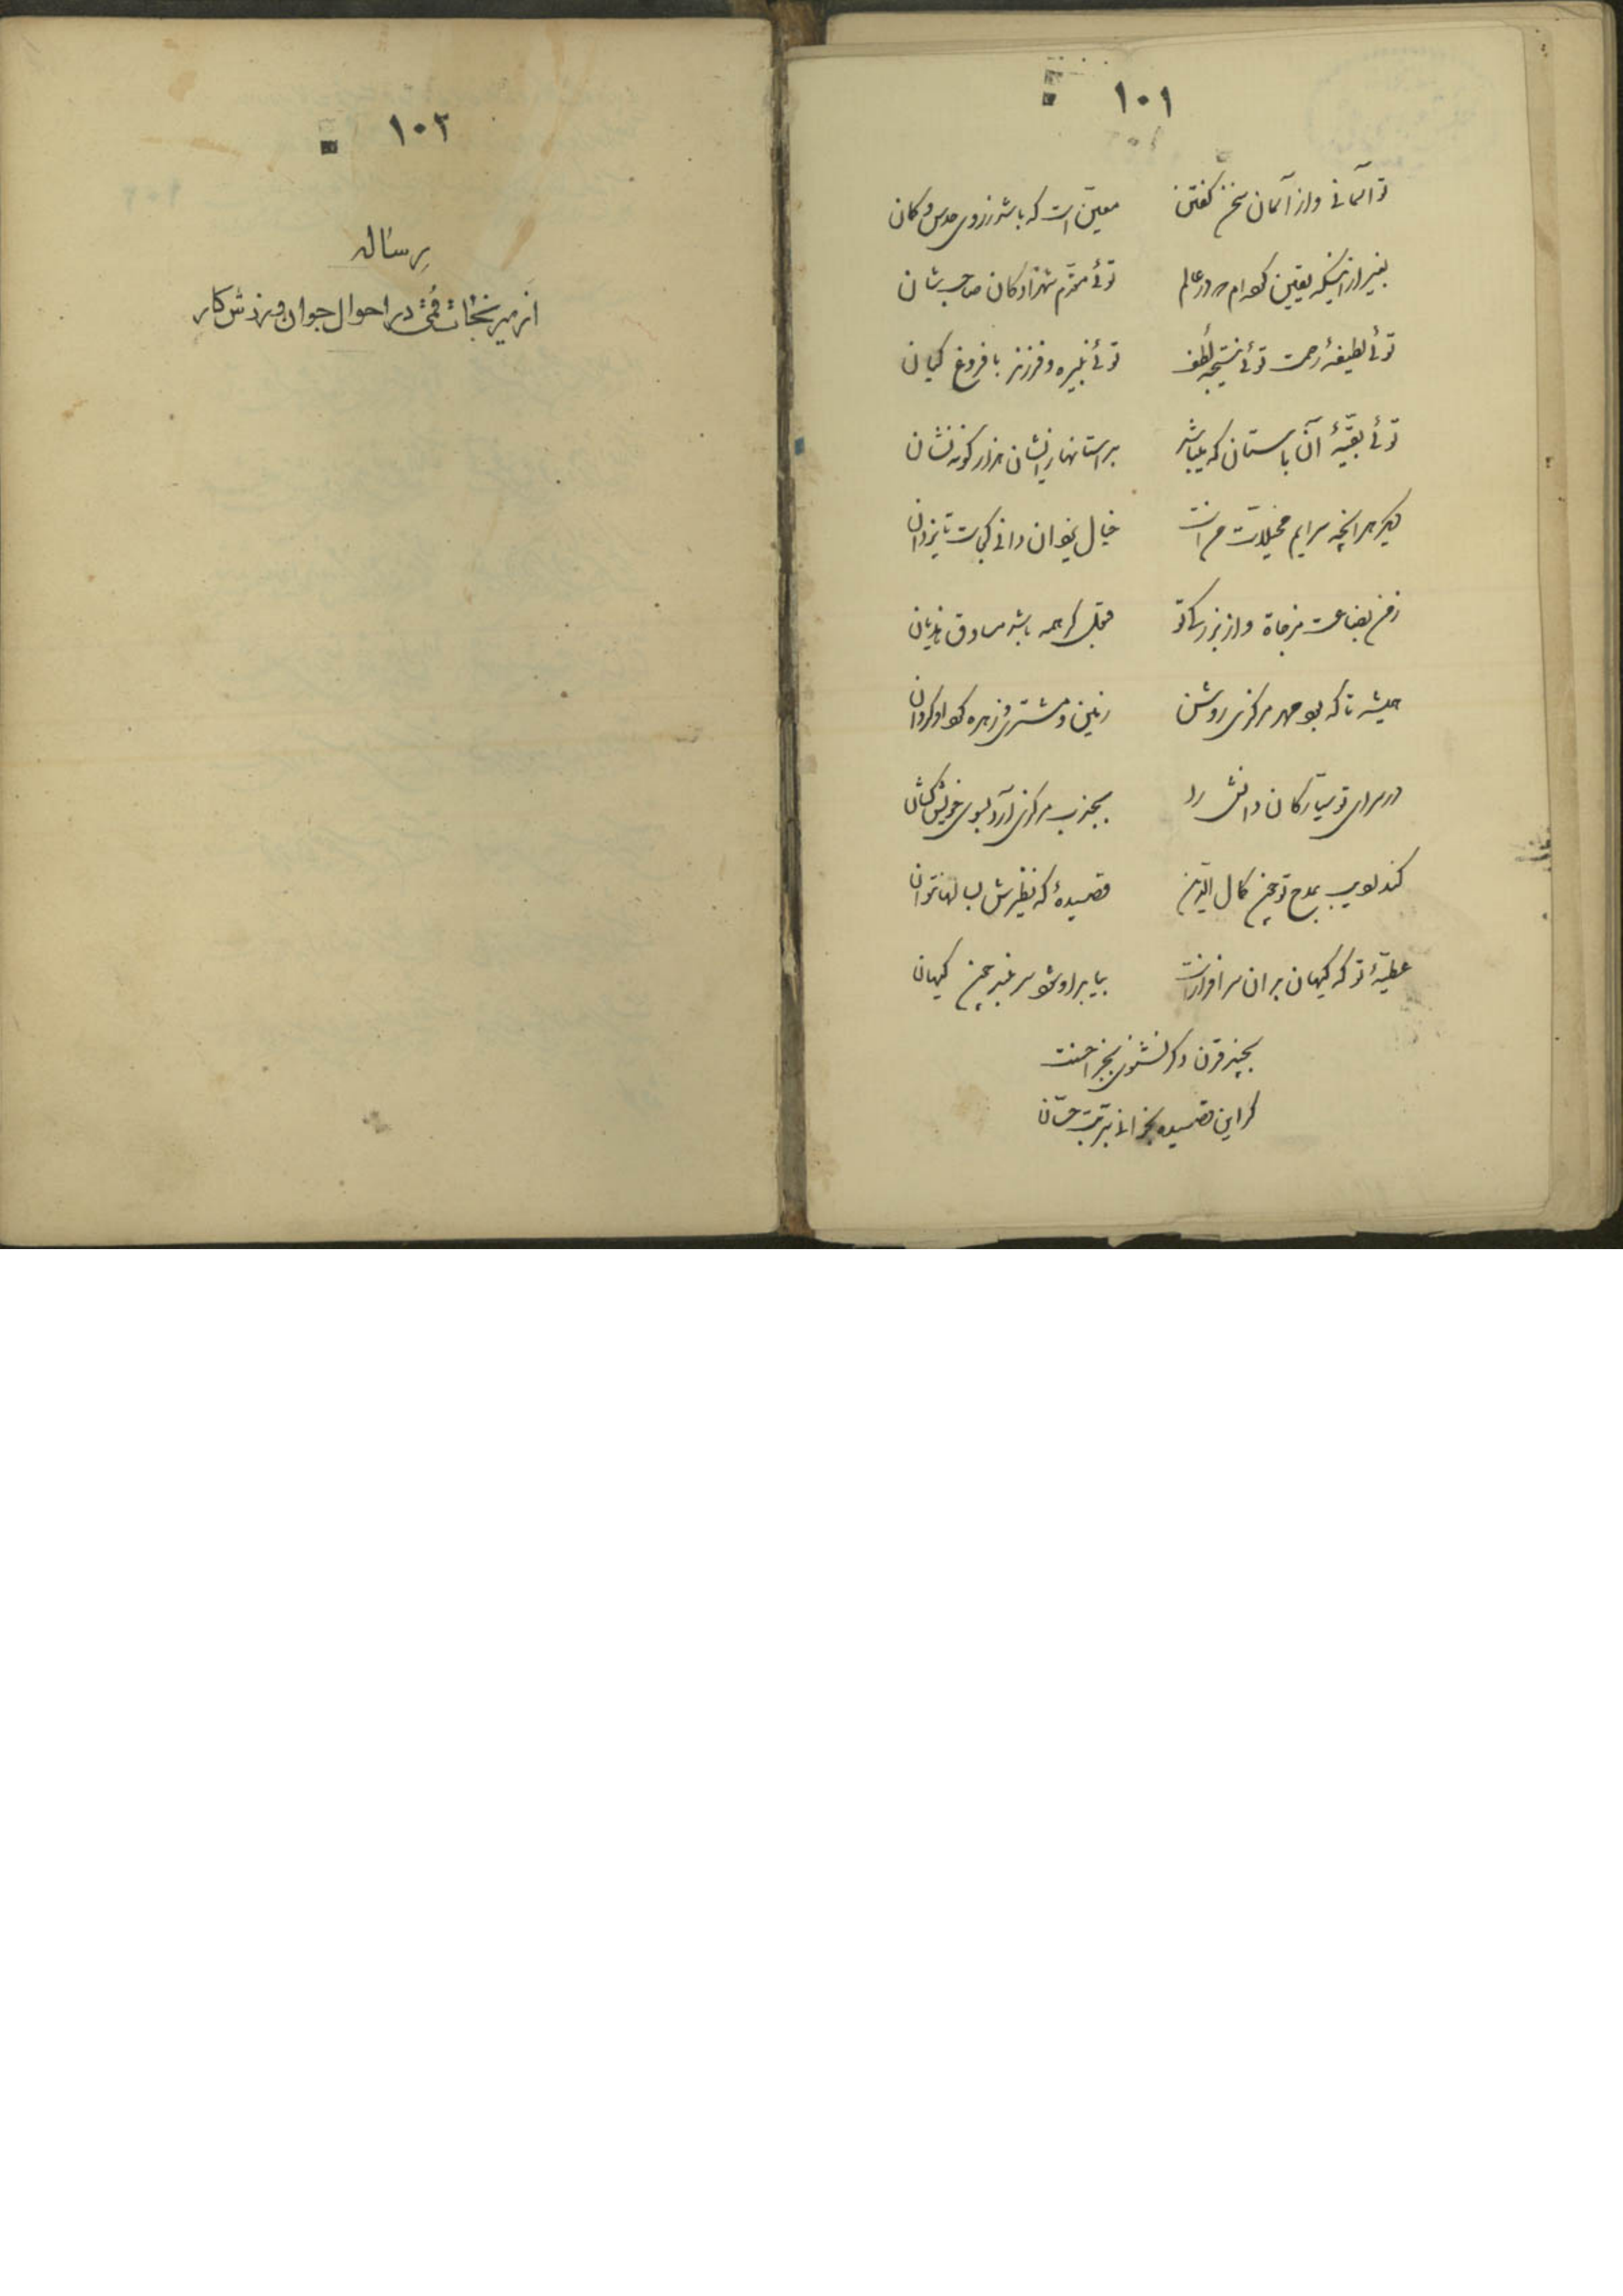 ۱۰۱
تو آسمانی و از آسمان سخن گفتن
معین است که باشد ز روی حدس و کمان
بغیر از اینکه یقین کرده‌ام در عالم
توئی محترم شهزادکان صاحب شان
توئی لطیفهٔ رحمت توئی نتیجه لطف
توئی نبیره و فرزند با فروغ کیان
توئی بقیّهٔ آن باستان که میباشد
براستانهاز ایشان هزار کونه نشان
دیکر هر آنچه سرایم مخیلات من است
خیال
ز من بضاعت مزجاة و از بزرکی تو
قبول کر همه باشد
همیشه تا که بود مهر مرکزی روشن
زمین و مشتری و زهره کرد او کردان
در سرای تو سیّارکان دانش را
بجذب مرکزی آرد بسوی خویش کشان
کند ادیب بمدح تو چون کمال الدین
قصیدهٔ که نظیرش بسالها نتوان
عطیّهٔ تو که کیهان بران سرافراز است
بیابد او شود سر بلند چون کیهان
بچند قرن دکر نشنوی بجز احسنت
کر این قصیده بخوانی بتربت حسّان
۱۰۲
رساله
از میر نجات قمی در احوال جوان ورزش کار